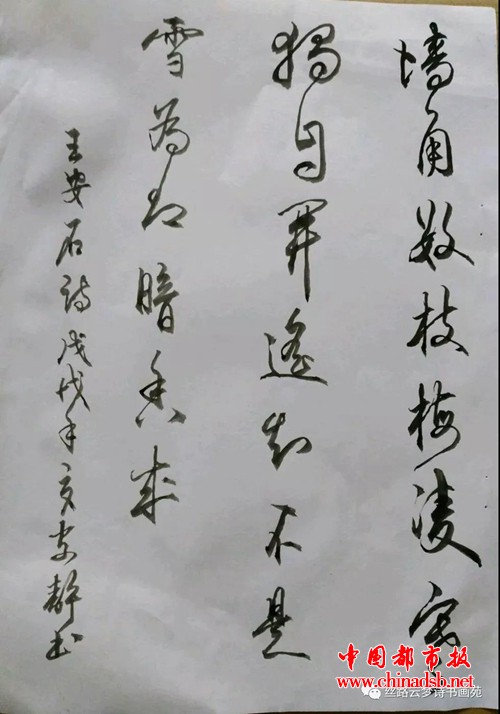 墙角数枝梅凌寒
獨自開遙知不是
雪為有暗香來
王安石诗戊戌年静书
中国都市报
www.chinadsb.net
丝路云梦诗书画苑